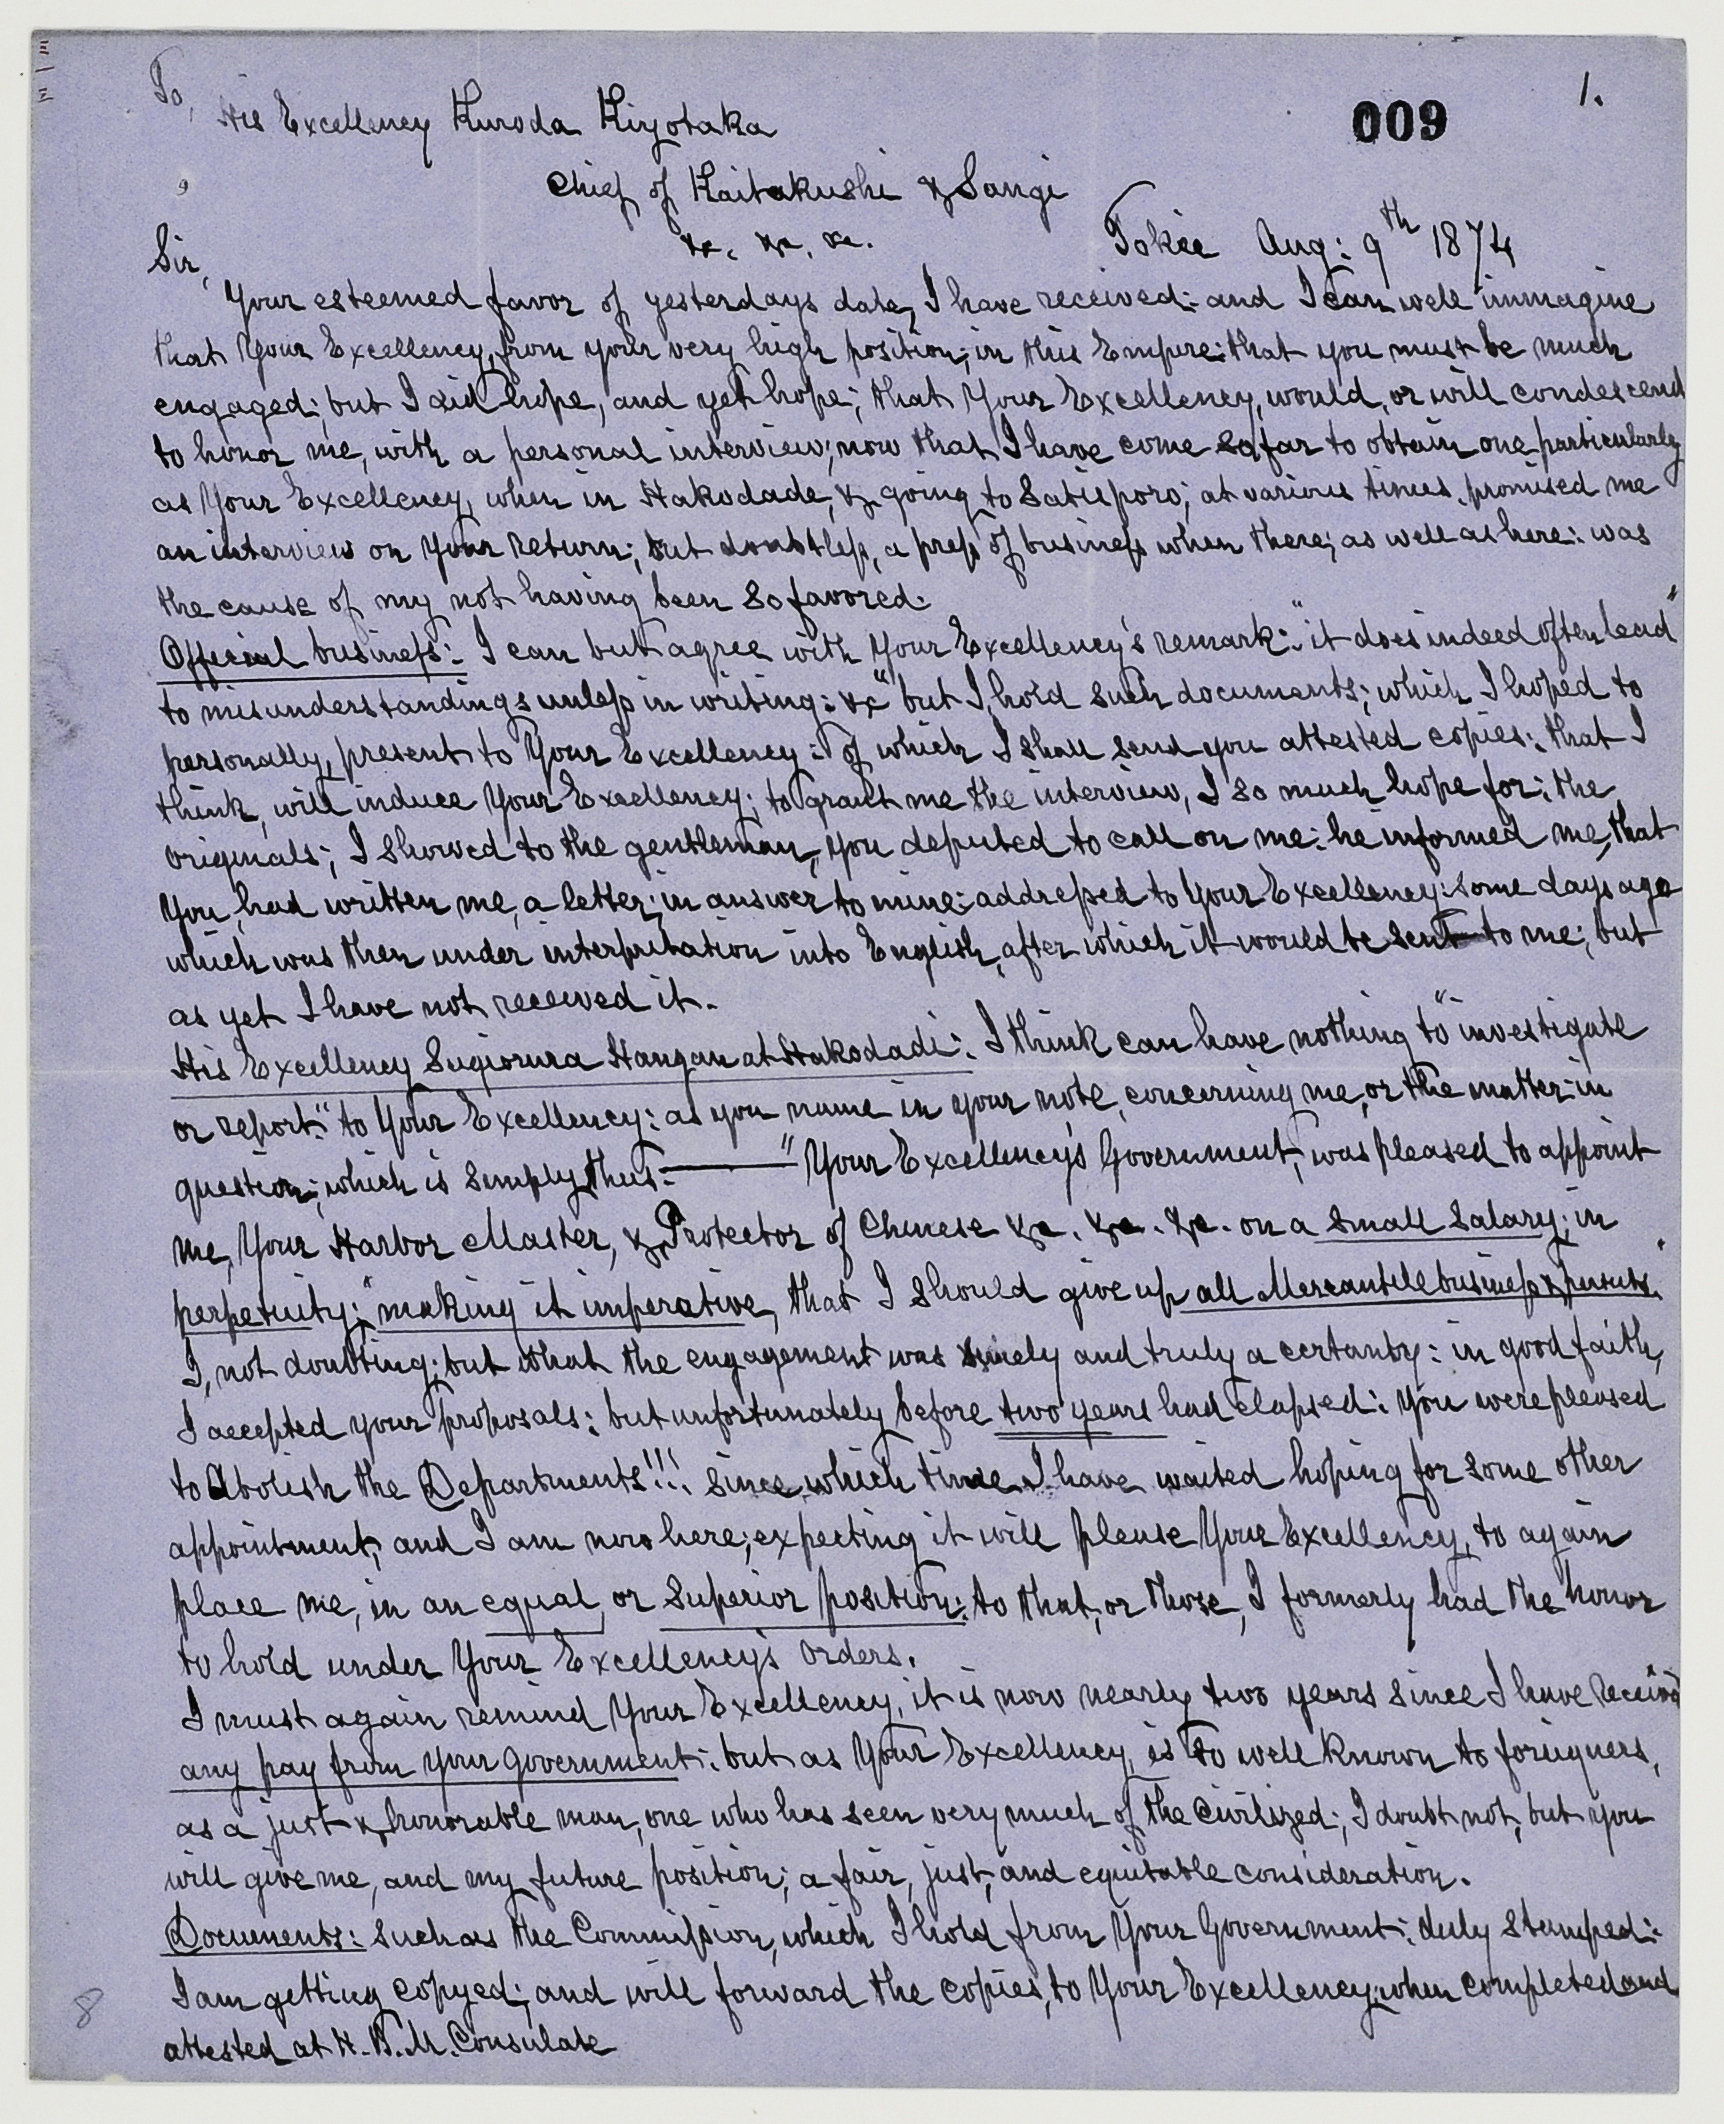 To,
His Excellency Kuroda Kiyotaka
009
1.
Chief of Kaitakushi & Sangi
&c. &c. &c.
Tokie Aug: 9th 1874
Sir,
Your esteemed favor of yesterdays date, I have received: and I can well immagine
that Your Excellency, from your very high position; in this Empire: that you must be much
engaged; but I did hope, and yet hope; that Your Excellency, would, or will condescend
to honor me, with a personal interview; now that I have come so far to obtain one particularly
as Your Excellency, when in Hakodade, & going to Satieporo; at various times, promised me
an interview on your return; but doubtless, a press of business when there; as well as here: was
the cause of my not having been so favored.
Official business: I can but agree with Your Excellency's remark: "it does indeed often lead"
to misunderstandings unless in writing: &c" but I, hold such documents; which I hoped to
personally, present to Your Excellency: of which I shall send you attested copies: that I
think, will induce Your Excellency; to grant me the interview, I so much hope for: the
originals; I showed to the gentleman, you deputed to call on me: he informed me, that
you, had written me, a letter; in answer to mine: addressed to Your Excellency: some days ago
which was then under interpretation into English, after which it would be sent to me; but
as yet I have not received it.
His Excellency Sugioura Hangan at Hakodadi: I think can have nothing to "investigate
or report" to Your Excellency: as you name in your note, concerning me, or the matter in
question; which is simply thus. — "Your Excellency's Government, was pleased to appoint
me, Your Harbor Master, & Protector of Chinese &c. &c. &c. on a small salary; in
perpetuity; "making it imperative, that I should give up all Mercantile business & pursuits.
I, not doubting; but what the engagement was surely and truly a certanty: in good faith,
I accepted your proposals: but unfortunately before two years had elapsed: You were pleased
to Abolish the Departments!!! since, which time I have waited hoping for some other
appointment, and I am now here; expecting it will please Your Excellency, to again
place me, in an equal, or superior position: to that, or those, I formerly had the honor
to hold under Your Excellency's orders.
I must again remind Your Excellency, it is now nearly two years since I have received
any pay from your government: but as Your Excellency, is so well known to foreigners,
as a just & honorable man, one who has seen very much of the civilized; I doubt not, but you
will give me, and my future position; a fair, just, and equitable consideration.
Documents: such as the Commission, which I hold from Your Government: duly stamped:
I am getting copyed; and will forward the copies, to Your Excellency: when completed and
attested at H.B.M. Consulate
8